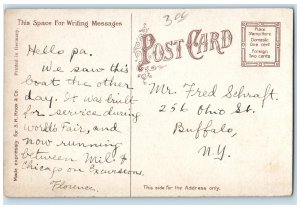 This Space For Writing Messages
300
POST CARD
Place
Stamp Here
Domestic
One cent
Foreign
Two cents
Made expressly for S. H. Knox & Co. Printed in Germany.
Hello pa.
We saw this
boat the other
day. It was built
for service during
world's Fair, and
now running
between Mil. &
Chicago on Excursions.
Florence.
Mr. Fred Schraft.
256 Ohio St.
Buffalo,
N.Y.
This side for the Address only.